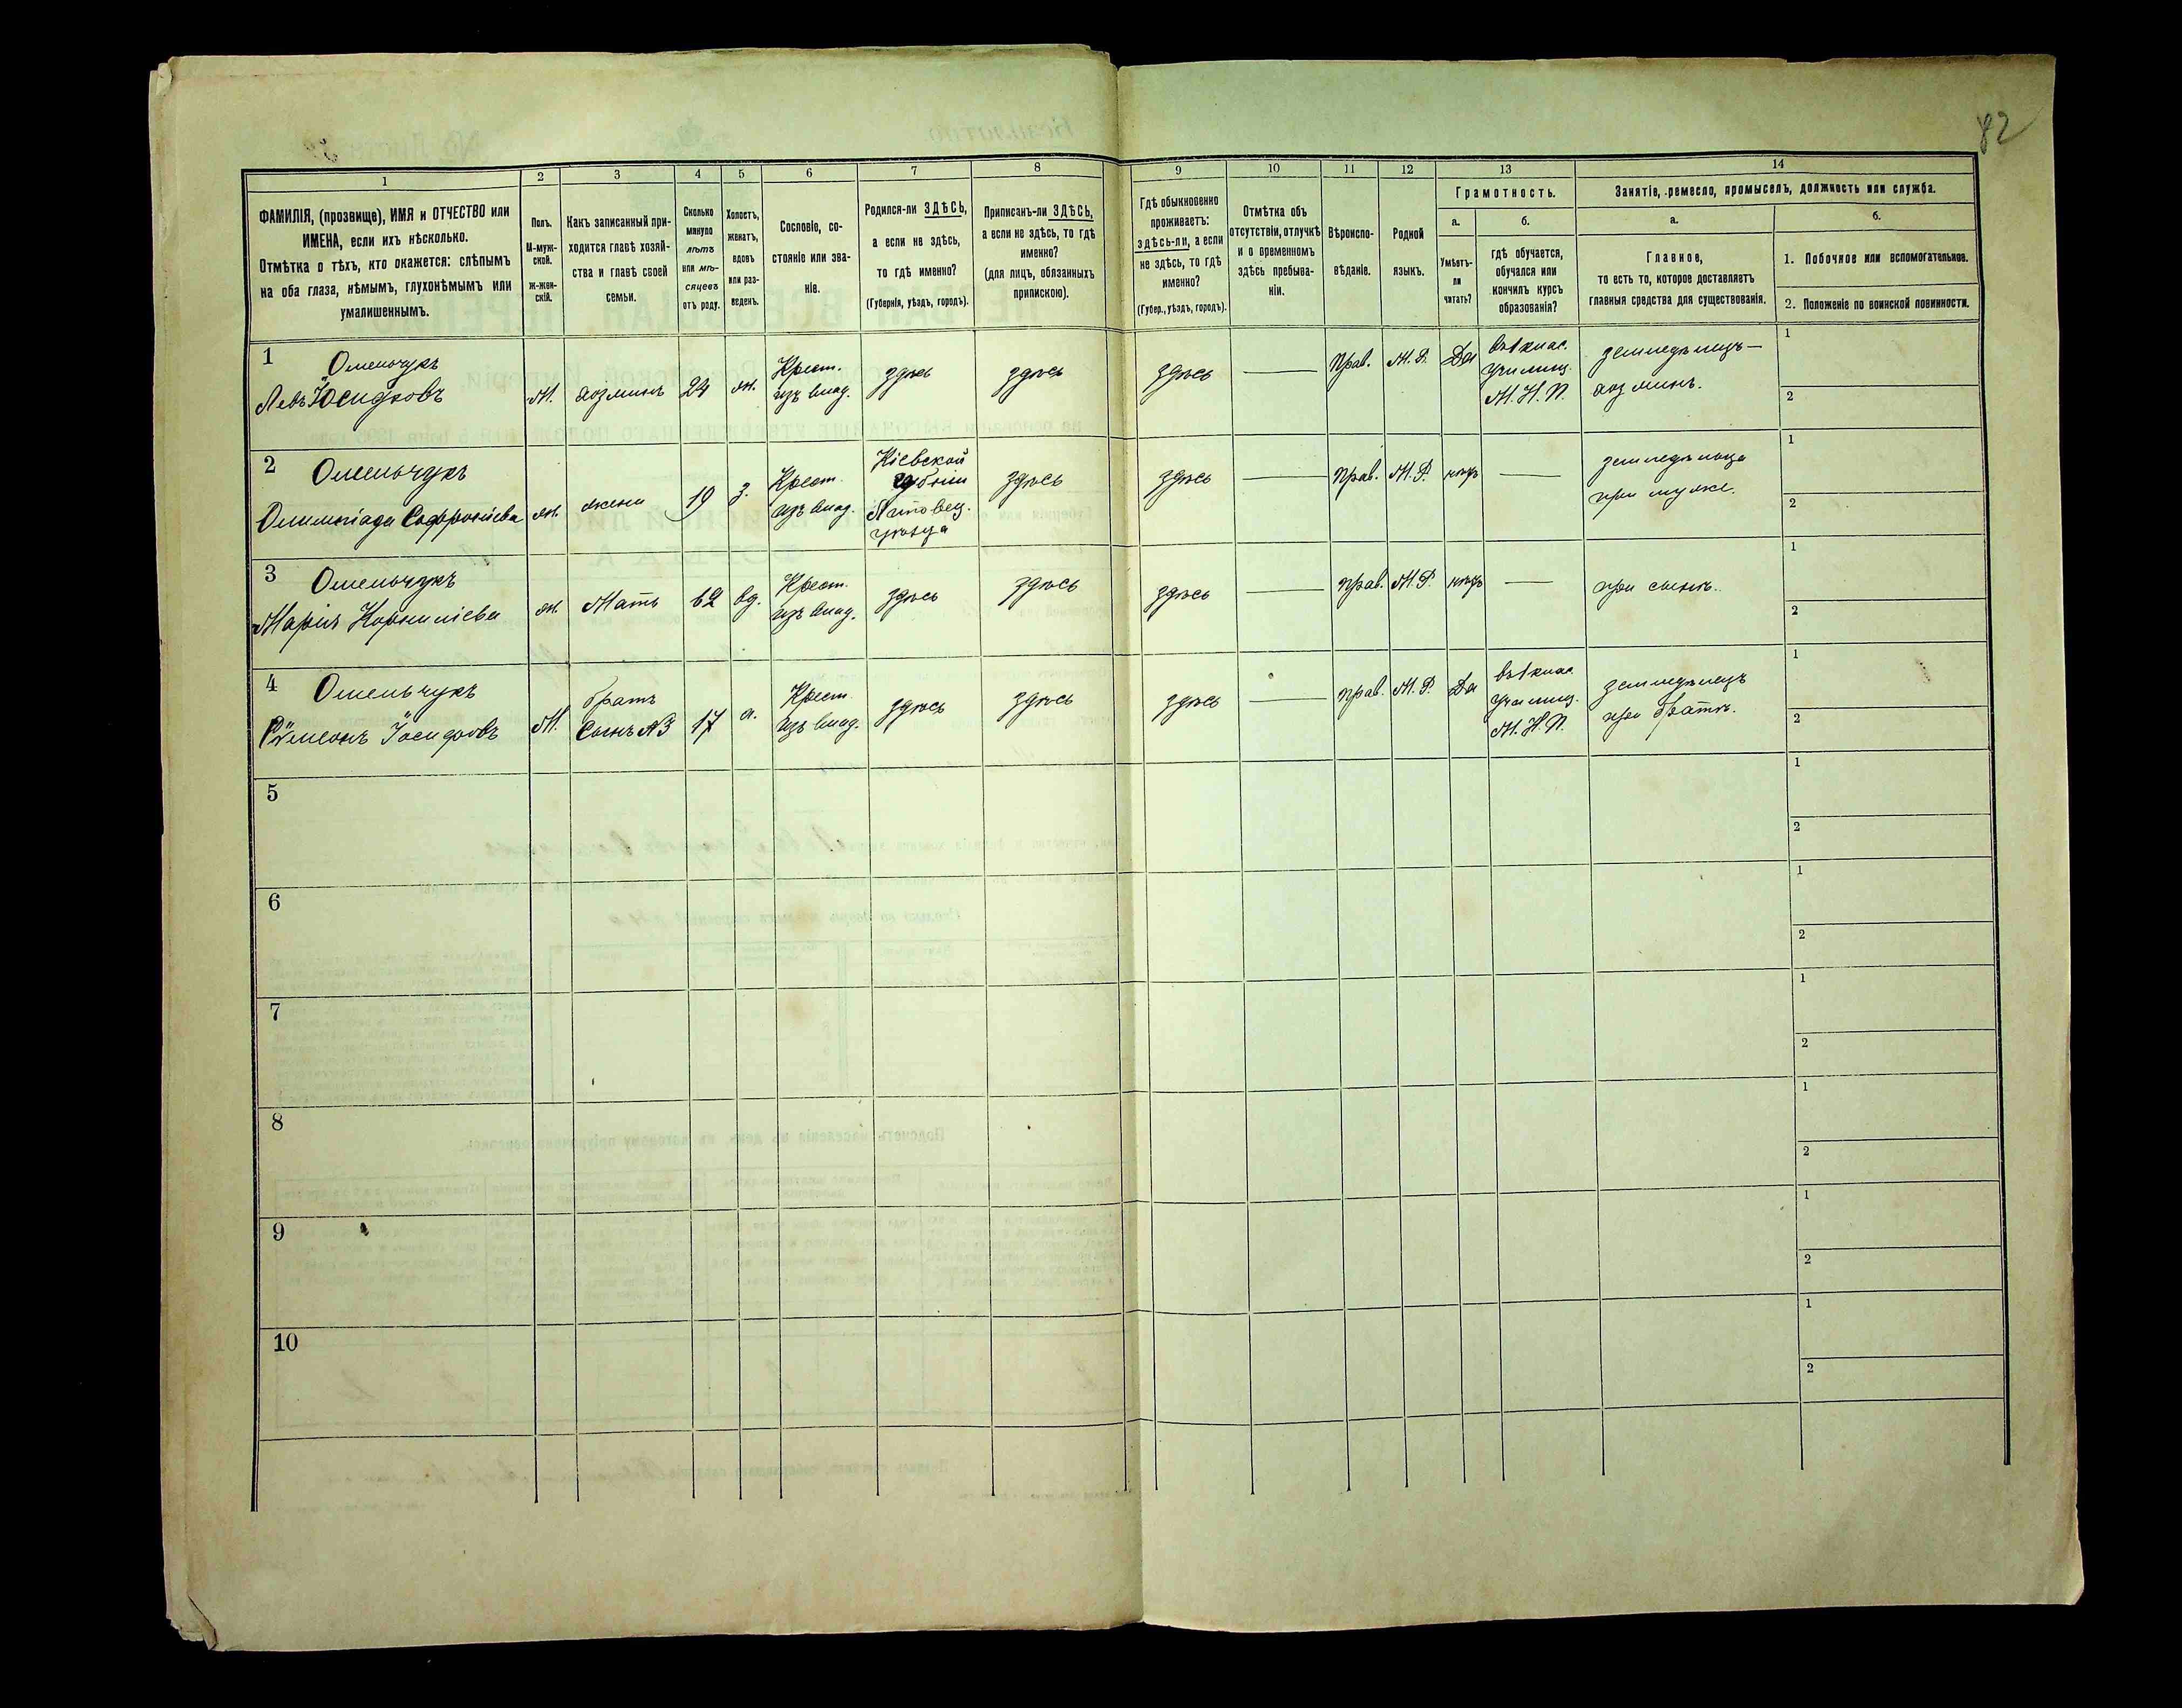 82
1
2
3
4
5
6
7
8
9
10
11
12
13
14
ФАМИЛІЯ, (прозвище), ИМЯ и ОТЧЕСТВО или
ИМЕНА, если ихъ нѣсколько.
Отмѣтка о тѣхъ, кто окажется: слѣпымъ
на оба глаза, нѣмымъ, глухонѣмымъ или
умалишеннымъ.
Полъ.
М-муж-
ской.
Ж-жен-
скій.
Какъ записанный при-
ходится главѣ хозяй-
ства и главѣ своей
семьи.
Сколько
минуло
лѣтъ
или мѣ-
сяцевъ
отъ роду.
Холостъ,
женатъ,
вдовъ
или раз-
веденъ.
Сословіе, со-
стояніе или зва-
ніе.
Родился-ли ЗДѢСЬ,
а если не здѣсь,
то гдѣ именно?
(Губернія, уѣздъ, городъ).
Приписанъ-ли ЗДѢСЬ,
а если не здѣсь, то гдѣ
именно?
(для лицъ, обязанныхъ
припискою).
Гдѣ обыкновенно
проживаетъ:
здѣсь-ли, а если
не здѣсь, то гдѣ
именно?
(Губер., уѣздъ, городъ).
Отмѣтка объ
отсутствіи, отлучкѣ
и о временномъ
здѣсь пребыва-
ніи.
Вѣроиспо-
вѣданіе.
Родной
языкъ.
Грамотность.
а.
Умѣетъ-
ли
читать?
б.
гдѣ обучается,
обучался или
кончилъ курсъ
образованія?
Занятіе, ремесло, промыселъ, должность или служба.
а.
Главное,
то есть то, которое доставляетъ
главныя средства для существованія.
б.
1. Побочное или вспомогательное.
2. Положеніе по воинской повинности.
1
Омельчукъ
Левъ Іосифовъ
М.
хозяинъ
24
ж.
Крест.
изъ влад.
здѣсь
здѣсь
здѣсь
—
Прав.
М. Р.
Да
въ 1 клас.
училищ.
М. Н. П.
земледѣлецъ —
хозяинъ.
1
2
2
Омельчукъ
Олимпіада Софроніева
ж.
жена
19
з.
Крест.
изъ влад.
Кіевской
губніи
Липовец.
уѣзда
здѣсь
здѣсь
—
Прав.
М. Р.
нѣтъ
—
земледѣлица
при мужѣ.
1
2
3
Омельчукъ
Марія Корниліева
ж.
Мать
62
вд.
Крест.
изъ влад.
здѣсь
здѣсь
здѣсь
—
прав.
М. Р.
нѣтъ
—
при сынѣ.
1
2
4
Омельчукъ
Іосифовъ
М.
братъ
Сынъ №3
17
х.
Крест.
изъ влад.
здѣсь
здѣсь
здѣсь
—
прав.
М. Р.
Да
въ 1 клас
училищ.
М. Н. П.
земледѣлецъ
при братѣ.
1
2
5
1
2
6
1
2
7
1
2
8
1
2
9
1
2
10
1
2